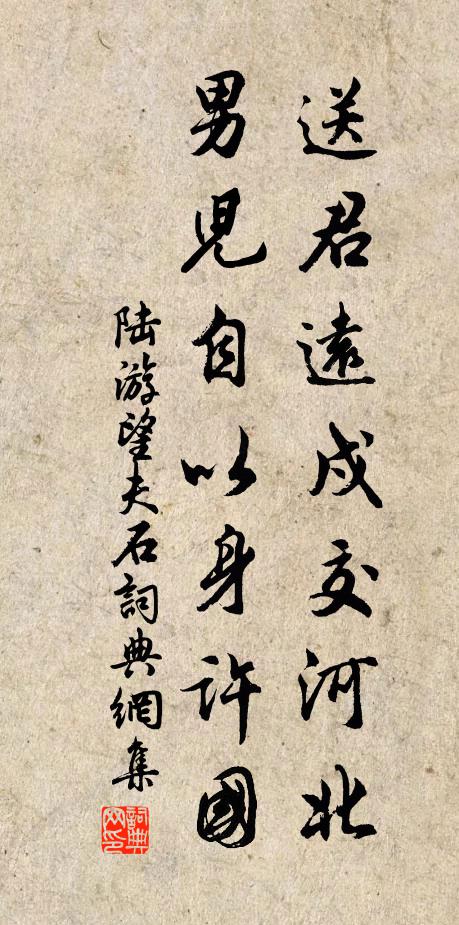 送君遠戍交河北
男兒自以身許國
陸游望夫石詞典網集
詞典网印